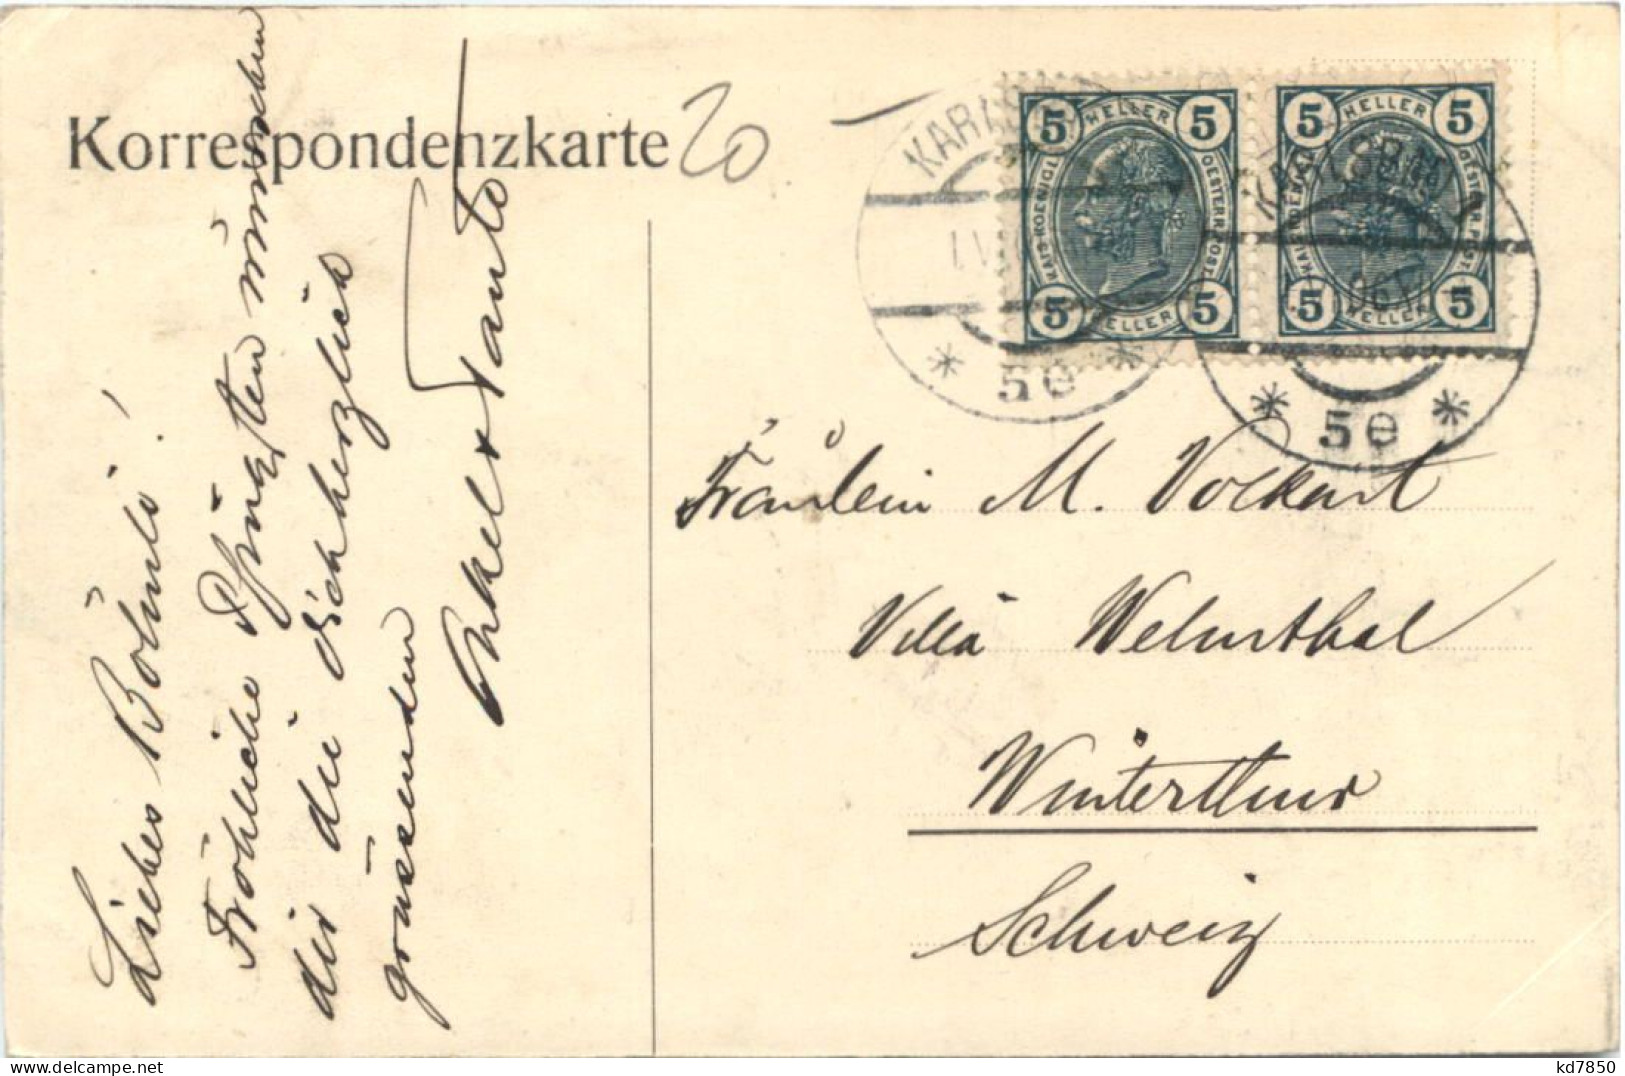 Korrespondenzkarte
20
Liebes Böhnli!
Fröhliche Pfingsten wünschen
dir die dich herzlich
grüssenden
Onkel + Tante
5 HELLER 5
KAIS. KOENIGL. OESTERR. POST.
5 HELLER 5
5 HELLER 5
KAIS. KOENIGL. OESTERR. POST.
5 HELLER 5
KARLSB
* 5e *
KARLSBAD
* 5e *
Fräulein M. Volkart
Villa Wehnthal
Winterthur
Schweiz
kd7850